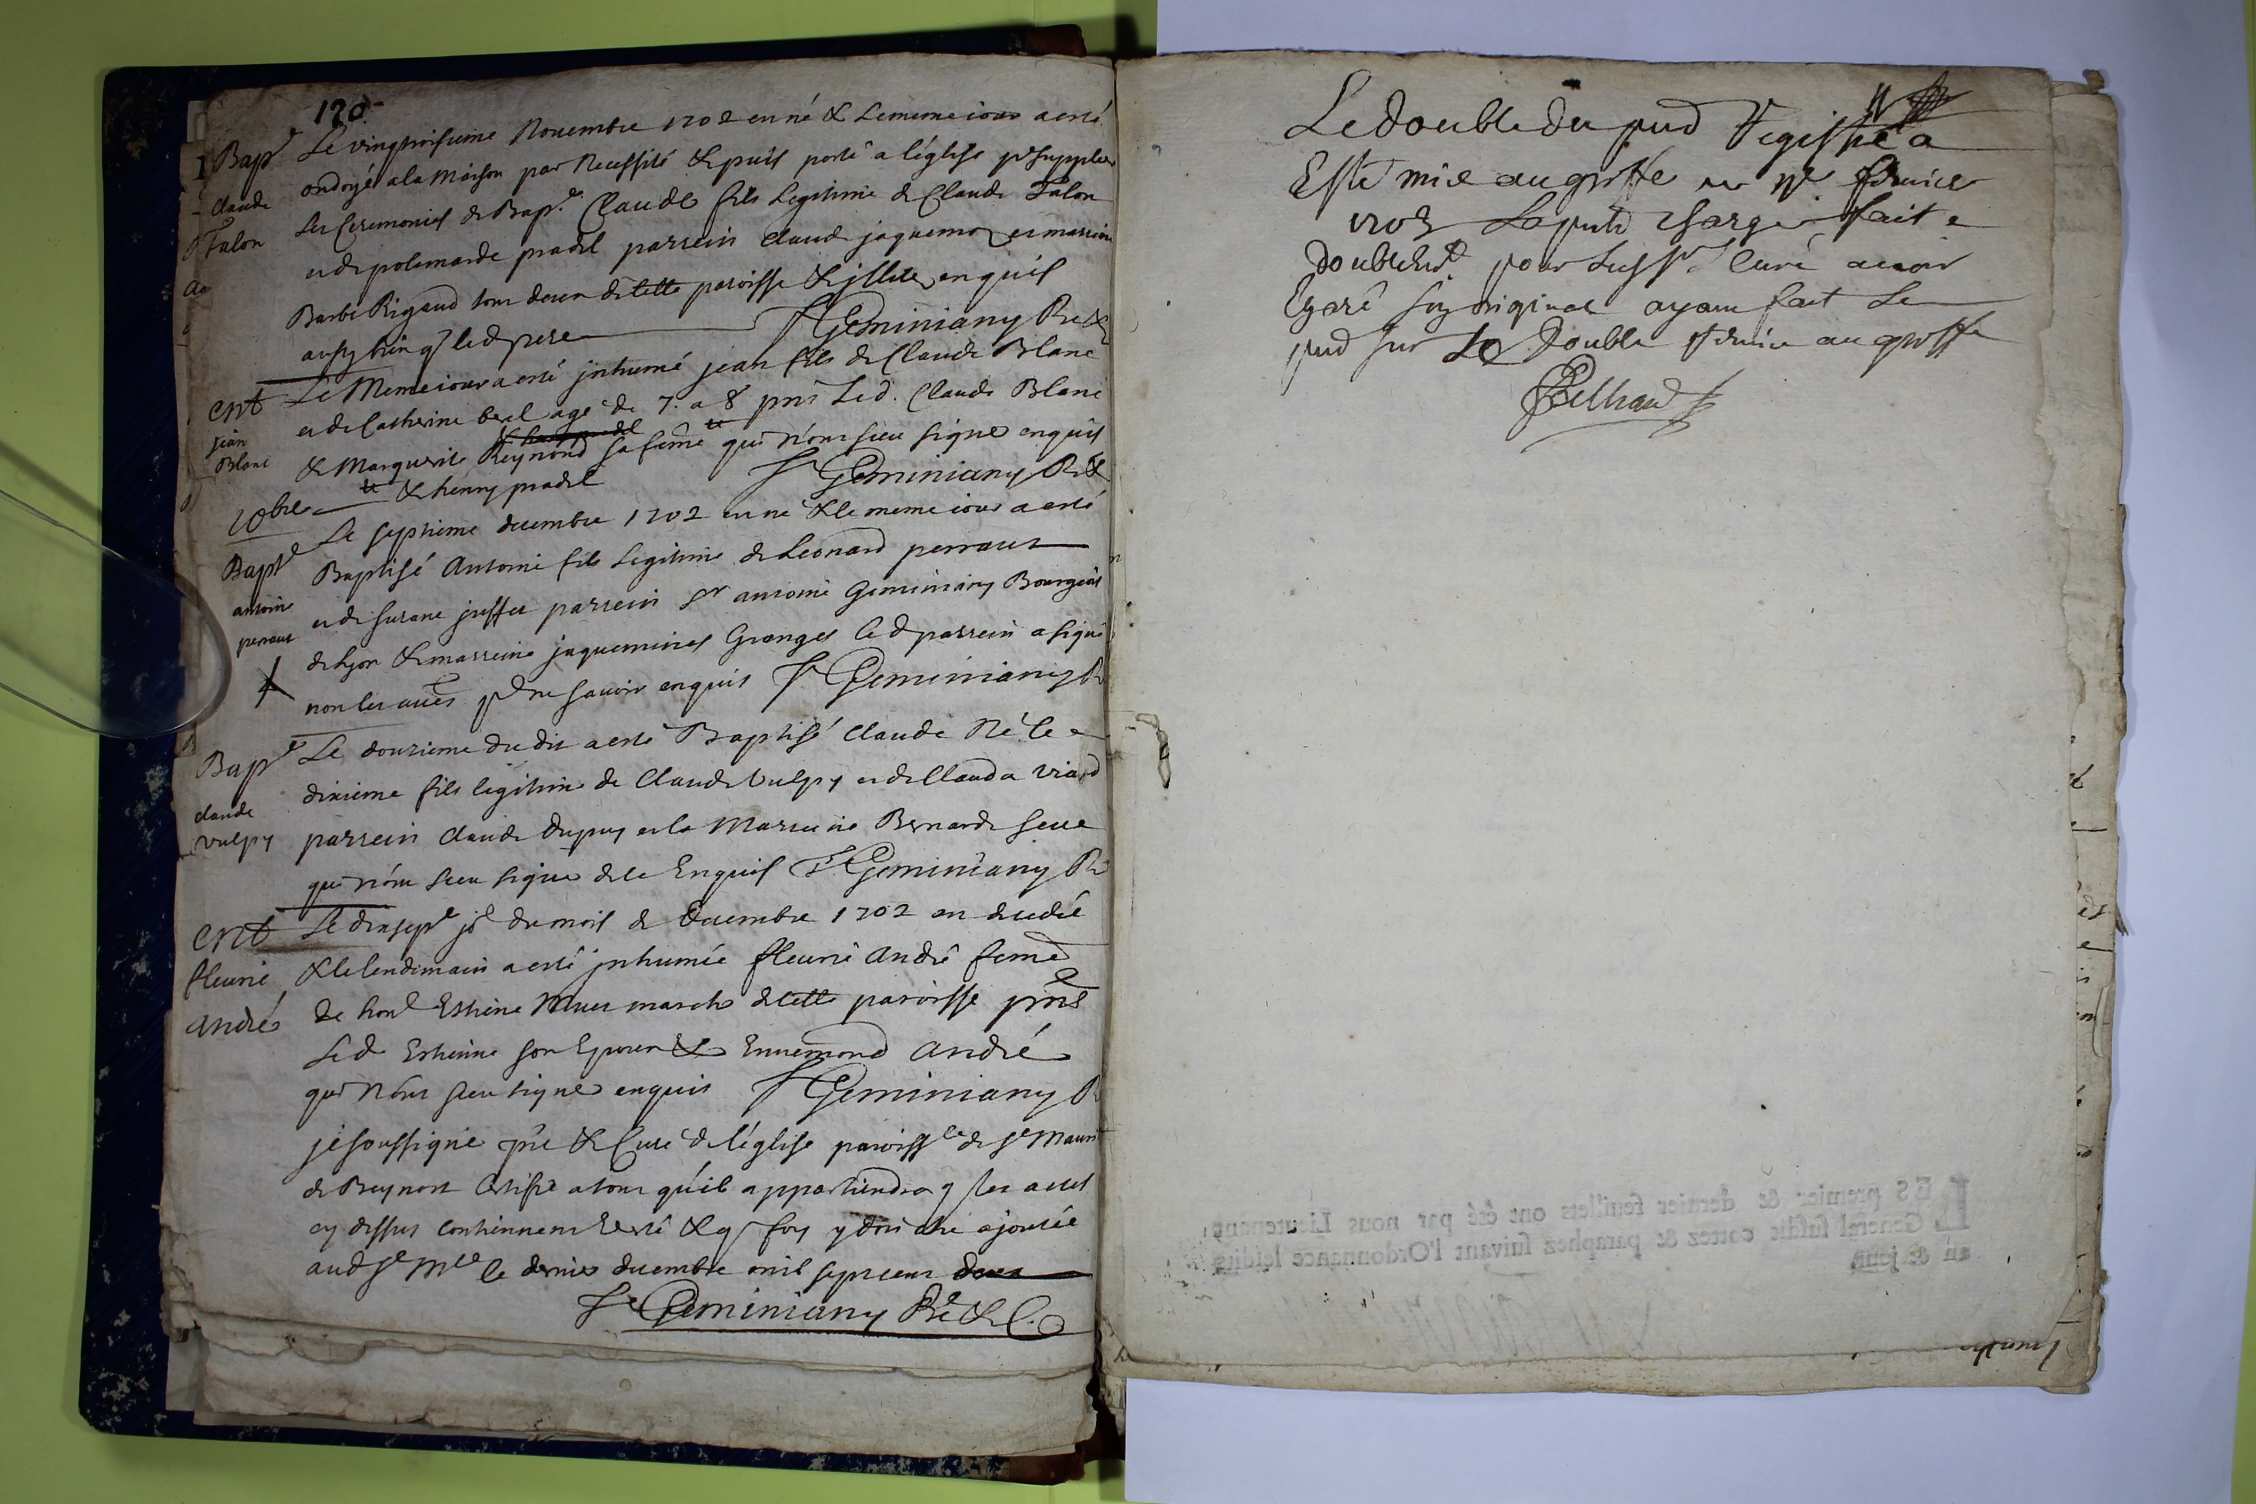 170
Bap.e Le vingtroisieme Novembre 1702 en né & le meme iour a esté
Claude ondoyé a la Maison par Necessité & puis porté a léglise pr suppleer
Talon les Ceremonies de Bap.e Claude fils Legitime de Claude Talon
et de polemarde pradel parrein Claude jaquemo et marrein
Barbe Rigaud tous deux de cette paroisse & illiteres enquis
ausy bien q le d pere F Geminiany Pre &
ent Le Meme iour a esté jnhumé jean fils de Claude Blanc
jean et de Catherine beal agé de 7. a 8 pnt Led. Claude Blanc
Blanc & Marguerite Reymond sa feme qui n'ont sceu signer enquis
& henry pradel F Geminiany Pre &
10bre
Le septieme decembre 1702 en né & le meme iour a esté
Bapt.e Baptisé Antoine fils Legitime de Leonard perraut
antoine et de Susane juffet parrein Sr antoine Geminiany Bourgeois
perraut de lyon & marreine jaquemines Granges le d parrein a signé
non les autres pr ne savoir enquis F Geminiany P
Bap.e Le douzieme du dit a esté Baptisé Claude Né le
claude dixieme fils legitime de Claude Vulpy et de Clauda viard
vulpy parrein Claude dupuy et la Marreine Bernarde seue
qui n'ont sceu signer de ce Enquis F Geminiany Pr
ent Le dixsept.e jr du mois de Decembre 1702 en decedée
fleurie & le lendemain a esté jnhumée fleurie André feme
andré de hon.e Estiene Muet march de cette paroisse pnts
Le d Estienne son Epoux & Ennemond André
qui n'ont sceu signer enquis F Geminiany P
je soussigné pre & Curé de l'église paroiss.le de St Mauri
de Beynost Certifie a tous qu'il appartiendra q les actes
cy dessus contiennent verité & q foy y doit etre ajoutée
aud St Mce le dernier decembre mil sept cent deux
F Geminiany Pre & C.
Le double du pnd Registre a
Esté mis au greffe
1703 fait
doublem.t pour led Sr Curé avoir
Egaré son original ayant fait le
pnd sur le double remis au greffe
LES premier & dernier feuillets ont été par nous Lieutenant
General susdit cottez & paraphez suivant l'Ordonnance lesdits
an & jour